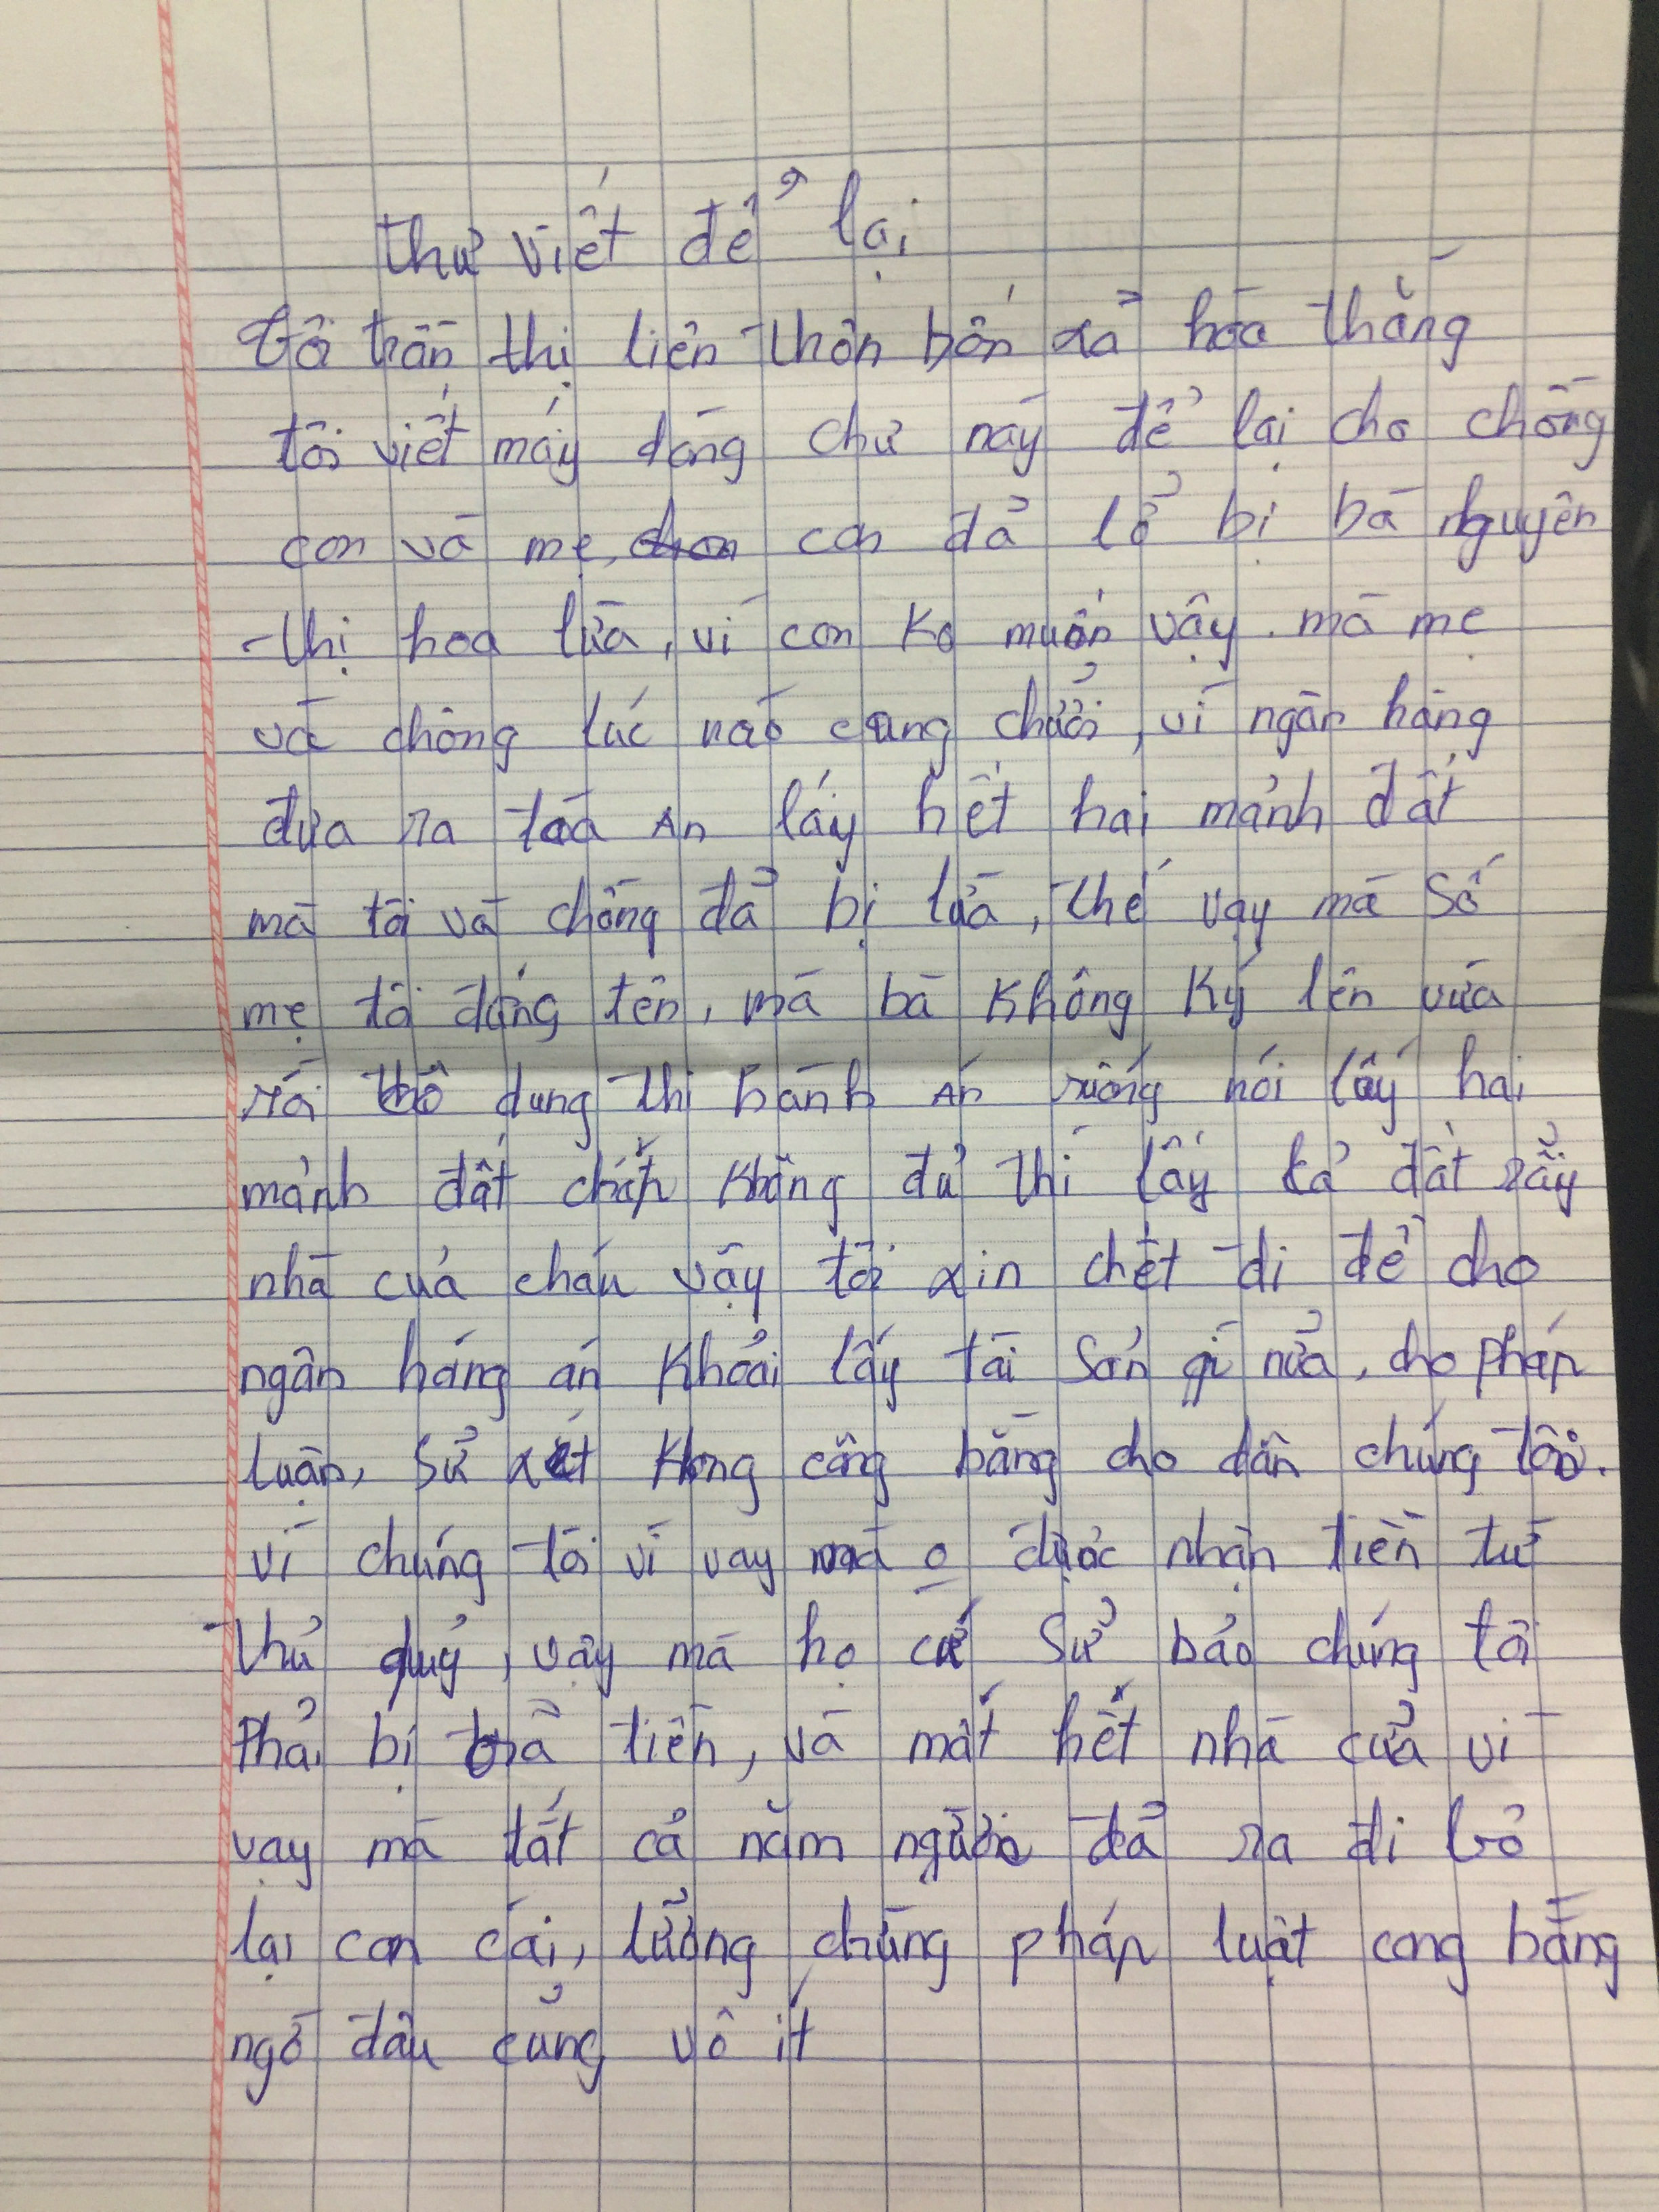 thư viết để lại
Tôi trần thị liên thôn bốn xả hòa thắng
tôi viết mấy dòng chư này để lại cho chồng
con và mẹ, con đả lở bị bà nguyên
thị hoa lừa, vì con ko muốn vậy. mà mẹ
và chồng lúc nào cung chưởi, vì ngân hàng
đưa ra tòa Án lấy hết hai mảnh đất
mà tôi và chồng đả bị lừa, thế vay mà Sổ
mẹ tôi đứng tên, mà bà Không Ký lên vừa
rồi dung thi hành Án xuống nói lấy hai
mảnh đất chấp Không đủ thì lấy cả đất rẫy
nhà của cháu vậy tôi xin chết đi để cho
ngân hàng án Khỏi lấy tài Sản gì nửa, cho pháp
luận, Sử xét Khong công bằng cho dân chúng tôi.
vì chúng tôi vì vay mà o được nhận tiền từ
Thủ quỷ, vậy mà họ cứ Sử bảo chúng tôi
Phải bị trả tiền, và mất hết nhà cửa vì
vay mà tất cả năm người đả ra đi bỏ
lại con cái, tưởng chừng pháp luật cong bằng
ngờ đâu củng vô ít